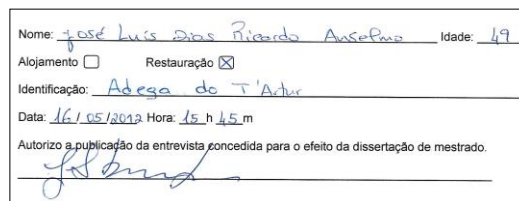 Nome: José Luís Dias Ricardo Anselmo Idade: 49
Alojamento ☐ Restauração ☒
Identificação: Adega do T'Artur
Data: 16/05/2012 Hora: 15 h 45 m
Autorizo a publicação da entrevista concedida para o efeito da dissertação de mestrado.